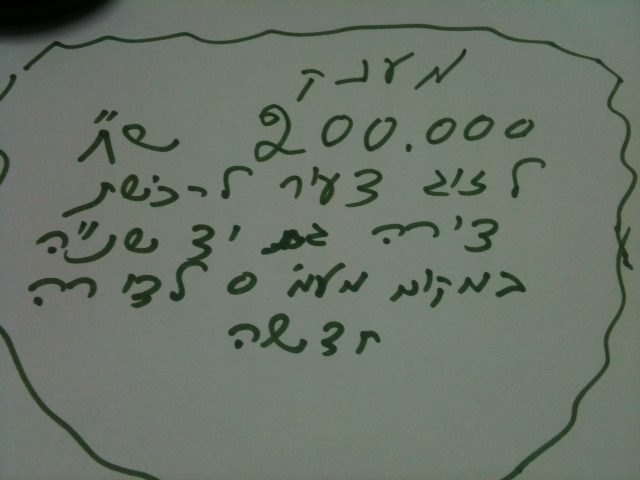 מענק
200.000 ש"ח
לזוג צעיר לרכישת
דירה גם יד שנייה
במקום מעמ 0 לדירה
חדשה